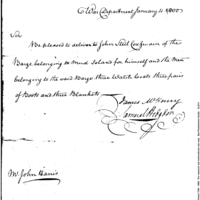 War Department January 4 1800
Sir
Be pleased to deliver to John Steel Coxswain of the
Barge belonging to Mud Island for himself and the Men
belonging to the said Barge three Watch Coats three pairs
of Boots and three Blankets
James McHenry
Samuel Hodgdon
Mr John Harris